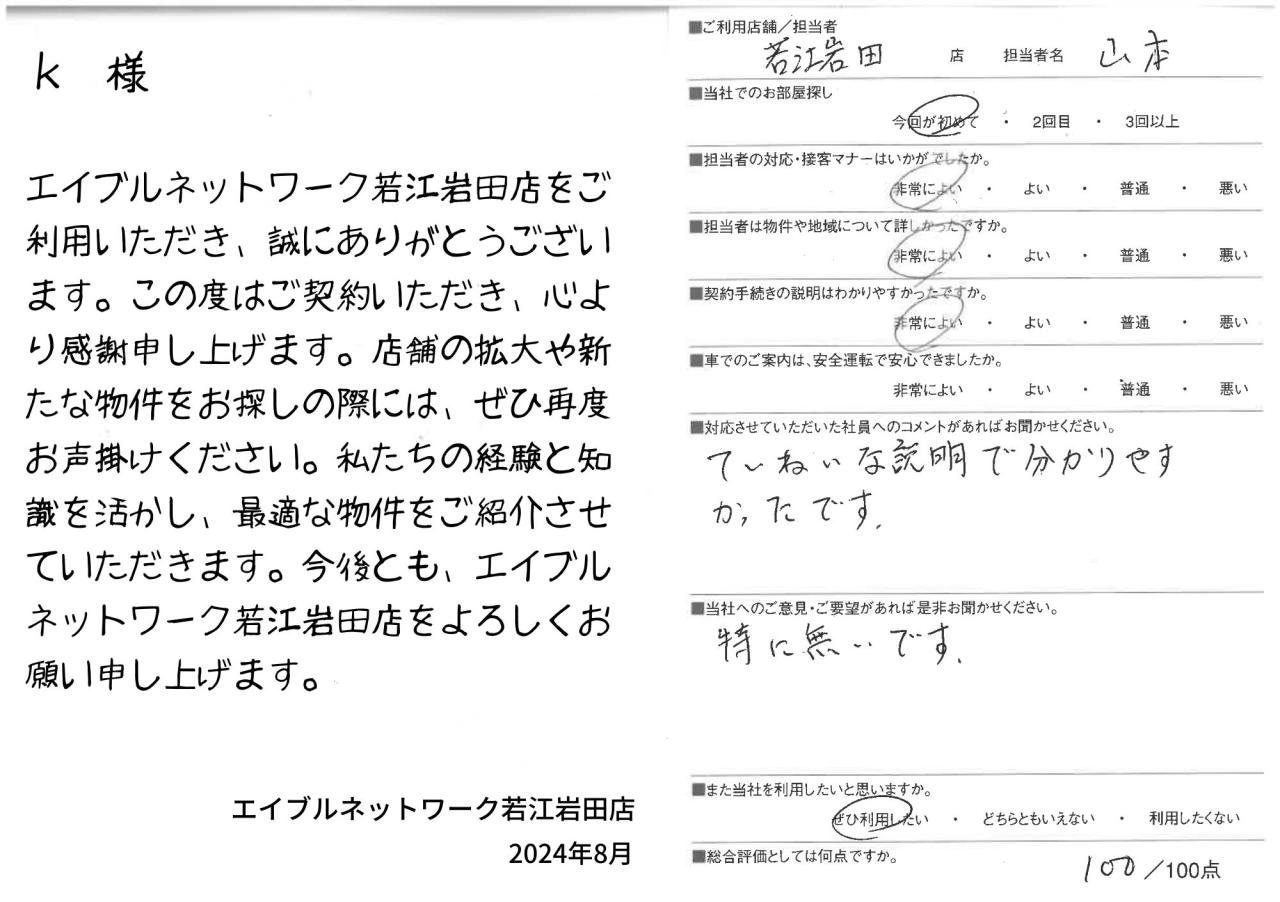 k 様
エイブルネットワーク若江岩田店をご
利用いただき、誠にありがとうござい
ます。この度はご契約いただき、心よ
り感謝申し上げます。店舗の拡大や新
たな物件をお探しの際には、ぜひ再度
お声掛けください。私たちの経験と知
識を活かし、最適な物件をご紹介させ
ていただきます。今後とも、エイブル
ネットワーク若江岩田店をよろしくお
願い申し上げます。
エイブルネットワーク若江岩田店
2024年8月
■ご利用店舗／担当者
若江岩田 店 担当者名 山本
■当社でのお部屋探し
今回が初めて ・ 2回目 ・ 3回以上
■担当者の対応・接客マナーはいかがでしたか。
非常によい ・ よい ・ 普通 ・ 悪い
■担当者は物件や地域について詳しかったですか。
非常によい ・ よい ・ 普通 ・ 悪い
■契約手続きの説明はわかりやすかったですか。
非常によい ・ よい ・ 普通 ・ 悪い
■車でのご案内は、安全運転で安心できましたか。
非常によい ・ よい ・ 普通 ・ 悪い
■対応させていただいた社員へのコメントがあればお聞かせください。
ていねいな説明で分かりやす
かったです.
■当社へのご意見・ご要望があれば是非お聞かせください。
特に無いです.
■また当社を利用したいと思いますか。
ぜひ利用したい ・ どちらともいえない ・ 利用したくない
■総合評価としては何点ですか。
100／100点